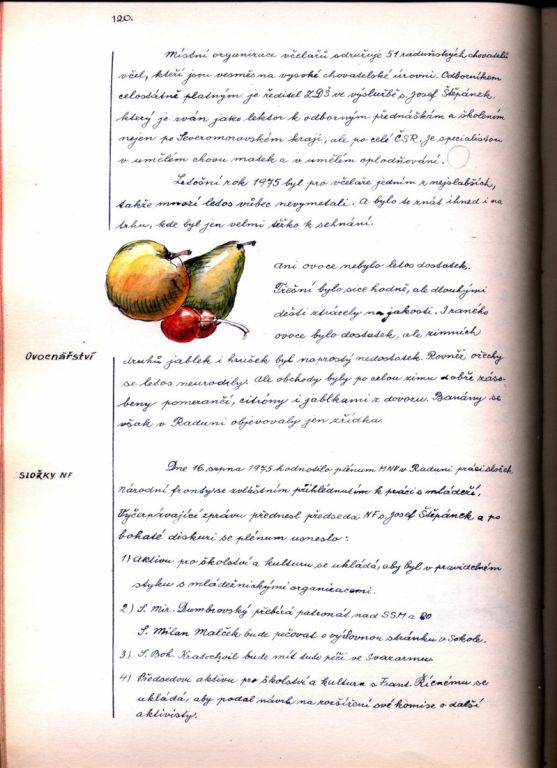 120.
Místní organizace včelařů sdružuje 51 raduňských chovatelů
včel, kteří jsou vesměs na vysoké chovatelské úrovni. Odborníkem
celostátně platným je ředitel ZDŠ ve výslužbě s. Josef Štěpánek,
který je zván jako lektor k odborným přednáškám a školením
nejen po Severomoravském kraji, ale po celé ČSR. Je specialistou
v umělém chovu matek a v umělém oplodňování.
Letošní rok 1975 byl pro včelaře jedním z nejslabších,
takže mnozí letos vůbec nevymetali. A bylo to znát ihned i na
trhu, kde byl jen velmi těžko k sehnání.
ani ovoce nebylo letos dostatek.
Třešní bylo sice hodně, ale dlouhými
dešti ztrácely na jakosti. I raného
ovoce bylo dostatek, ale zimních
Ovocnářství
druhů jablek i hrušek byl naprostý nedostatek. Rovněž ořechy
se letos neurodily. Ale obchody byly po celou zimu dobře záso-
beny pomeranči, citróny i jablkami z dovozu. Banány se
však v Raduni objevovaly jen zřídka.
SLOŽKY NF
Dne 16. srpna 1975 hodnotilo plénum MNV v Raduni práci složek
národní fronty se zvláštním přihlédnutím k práci s mládeží.
Vyčerpávající zprávu přednesl předseda NF s. Josef Štěpánek a po
bohaté diskusi se plénum usneslo:
1) Aktivu pro školství a kulturu se ukládá, aby byl v pravidelném
styku s mládežnickými organizacemi.
2) S. Mir. Dombrovský přebírá patronát nad SSM a
S. Milan Malček bude pečovat o výchovnou stránku v Sokole.
3) S. Boh. Kratochvil bude mít tuto péči ve Svazarmu
4) Předsedovi aktivu pro školství a kulturu s. Frant. Řícnému se
ukládá, aby podal návrh na rozšíření své komise o další
aktivisty.